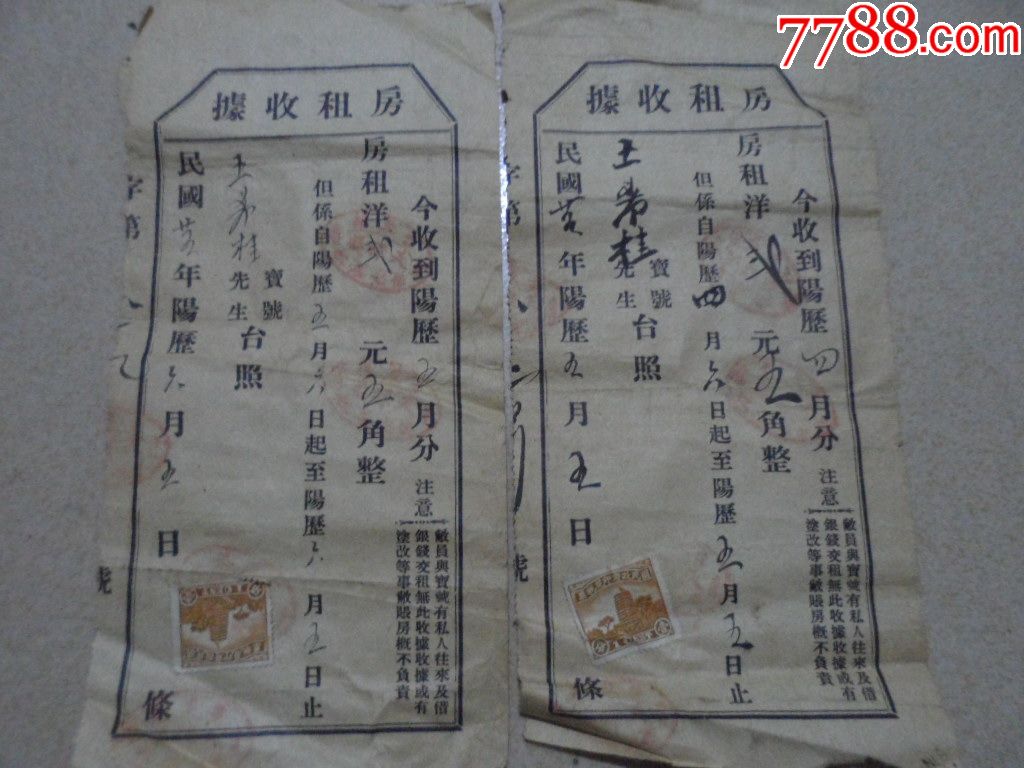 7788.com
房租收據
今收到陽歷四月分
注意
敝員與寶號有私人往來及借
銀錢交租無此收據收據或有
塗改等事敝賬房概不負責
房租洋弍元五角整
但係自陽歷四月六日起至陽歷五月五日止
王壽桂
寶號
先生
台照
民國廿年陽歷五月五日
條
字第
號
房租收據
今收到陽歷五月分
注意
敝員與寶號有私人往來及借
銀錢交租無此收據收據或有
塗改等事敝賬房概不負責
房租洋弍元五角整
但係自陽歷五月六日起至陽歷六月五日止
王壽桂
寶號
先生
台照
民國年陽歷六月五日
條
字第
號